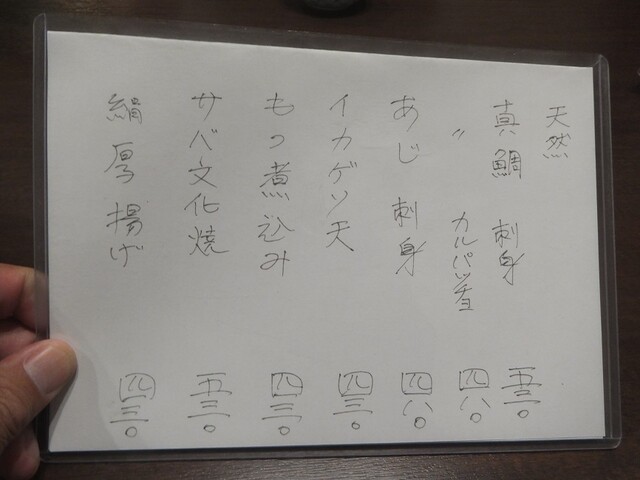 天然
真鯛 刺身 五三〇
〃 カルパッチョ 四八〇
あじ 刺身 四八〇
イカゲソ天 四三〇
もつ煮込み 四三〇
サバ文化焼 五三〇
絹厚揚げ 四三〇